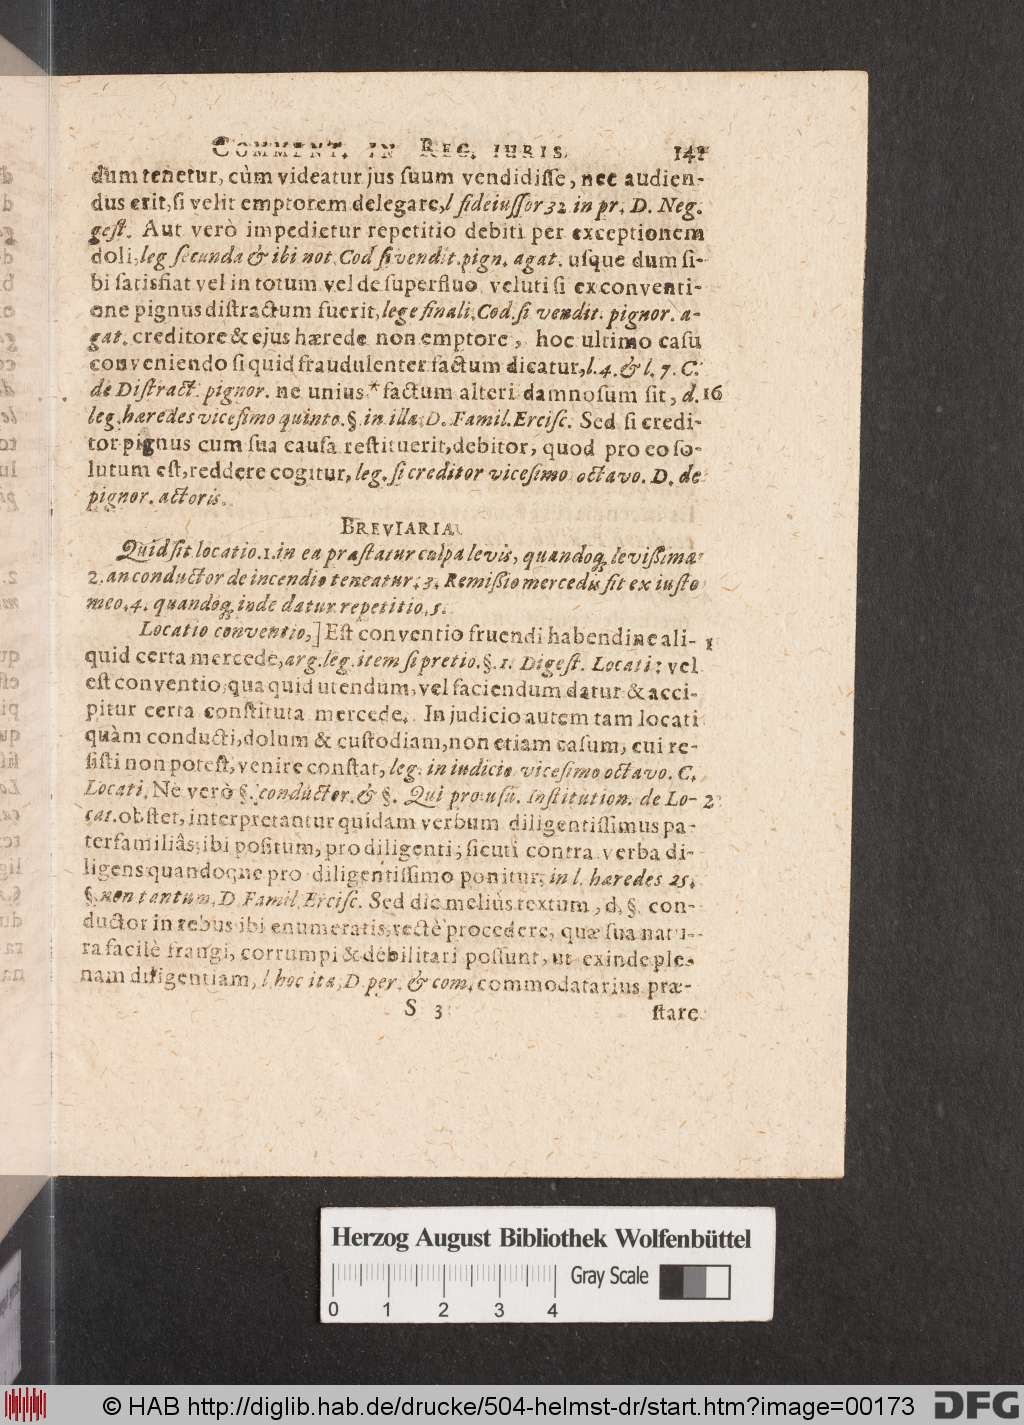 COMMENT. IN REG. IURIS. 141
dum tenetur, cùm videatur jus suum vendidisse, nec audien-
dus erit, si velit emptorem delegare, l fideiussor 32 in pr. D. Neg.
gest. Aut verò impedietur repetitio debiti per exceptionem
doli, leg secunda & ibi not. Cod si vendit. pign. agat. usque dum si-
bi satisfiat vel in totum vel de superfluo veluti si ex conventi-
one pignus distractum fuerit, lege finali, Cod. si vendit. pignor. a-
gat. creditore & ejus hærede non emptore, hoc ultimo casu
conveniendo si quid fraudulenter factum dicatur, l. 4. & l. 7. C.
de Distract. pignor. ne unius * factum alteri damnosum sit, d. 16
leg. hæredes vicesimo quinto. §. in illa, D. Famil. Ercisc. Sed si credi-
tor pignus cum sua causa restituerit, debitor, quod pro eo so-
lutum est, reddere cogitur, leg. si creditor vicesimo octavo. D. de
pignor. actoris.
BREVIARIA.
Quid sit locatio. 1. in ea præstatur culpa levis, quandoq; levissima
2. an conductor de incendio teneatur. 3. Remissio mercedis fit ex iusto
meo. 4. quandoq; inde datur repetitio. 5.
Locatio conventio,] Est conventio fruendi habendive ali- 1
quid certa mercede, arg. leg. item si pretio. §. 1. Digest. Locati: vel
est conventio, qua quid utendum, vel faciendum datur & acci-
pitur certa constituta mercede. In judicio autem tam locati
quàm conducti, dolum & custodiam, non etiam casum, cui re-
sisti non potest, venire constat, leg. in iudicio vicesimo octavo. C.
Locati. Ne verò §. conductor. & §. Qui pro usu. Institution. de Lo- 2
cat. obstet, interpretantur quidam verbum diligentissimus pa-
terfamiliâs, ibi positum, pro diligenti, sicuti contra verba di-
ligens quandoque pro diligentissimo ponitur, in l. hæredes 25.
§. non tantum, D. Famil. Ercisc. Sed dic meliùs textum, d. §. con-
ductor in rebus ibi enumeratis, rectè procedere, quæ sua natu-
ra facilè frangi, corrumpi & debilitari possunt, ut exinde ple-
nam diligentiam, l. hoc ita, D. per. & com. commodatarius præ-
S 3 stare
Herzog August Bibliothek Wolfenbüttel
0 1 2 3 4 Gray Scale
© HAB http://diglib.hab.de/drucke/504-helmst-dr/start.htm?image=00173 DFG